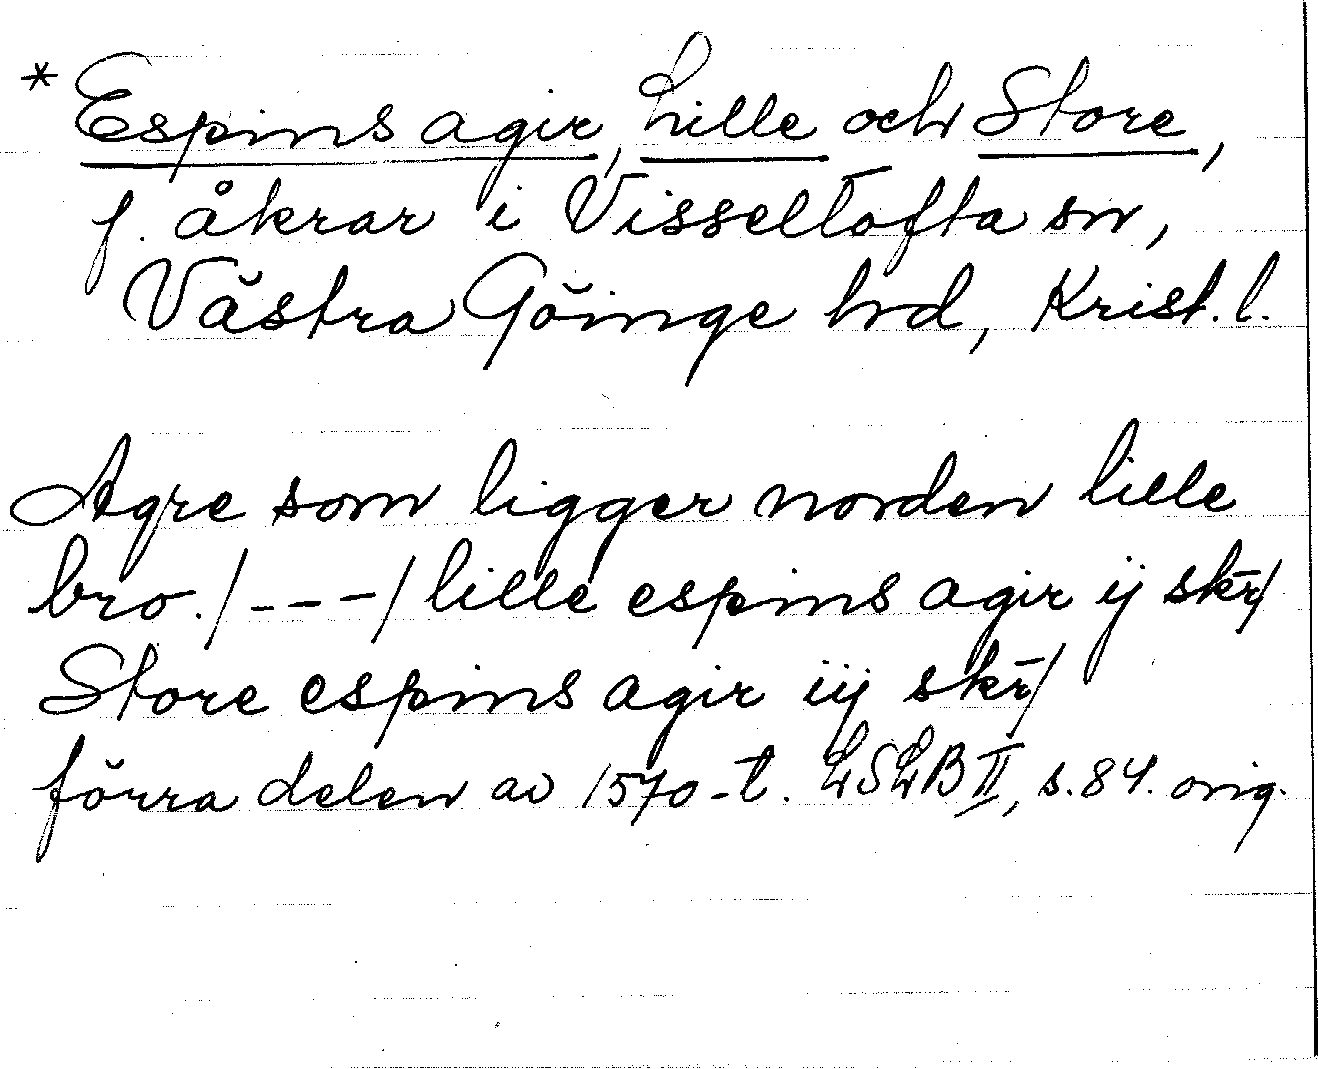 * Espins agir, Lille och Store,
f. åkrar i Visseltofta sn,
Västra Göinge hd, Krist. l.
Agre som ligger norden lille
bro./---/lille espins agir ij skr̄/
Store espins agir iij skr̄/
förra delen av 1570-t. LSLB II, s. 84. orig.